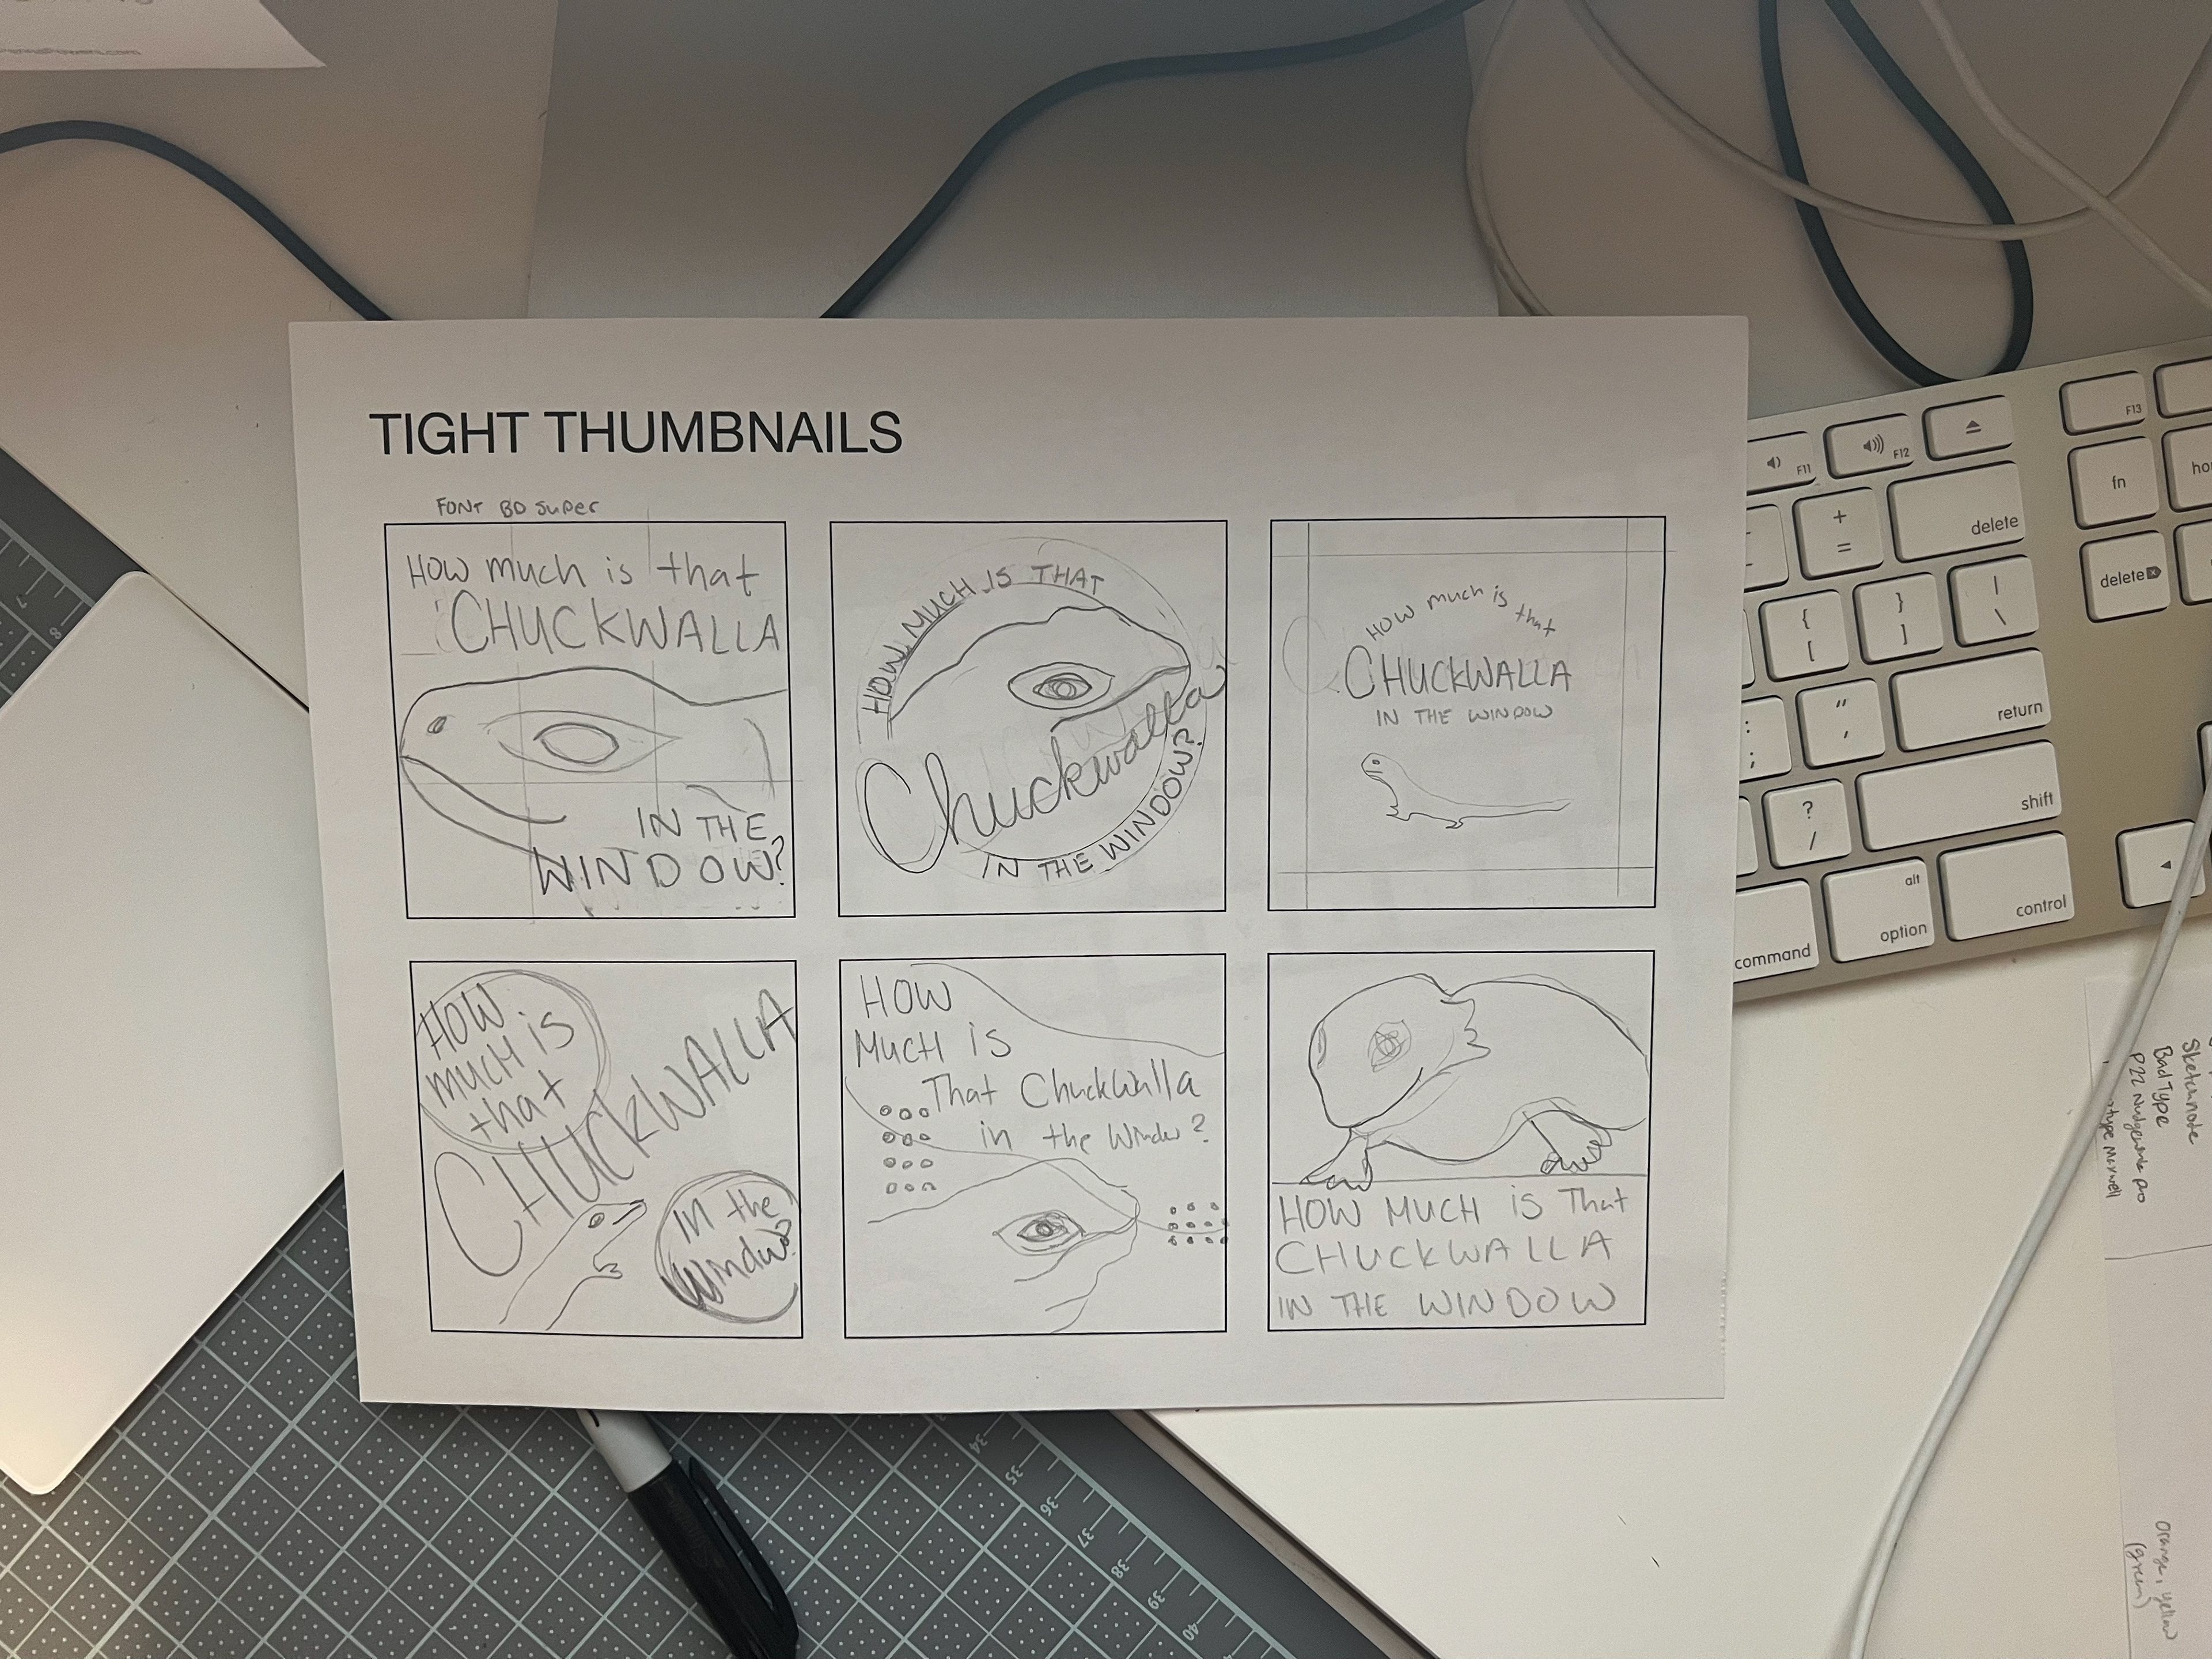 TIGHT THUMBNAILS
FONT BD Super
How much is that
CHUCKWALLA
IN THE
WINDOW?
HOW MUCH IS THAT
Chuckwalla
IN THE WINDOW?
How much is that
CHUCKWALLA
IN THE WINDOW
HOW
much is
that
CHUCKWALLA
In the
Window?
HOW
MUCH is
That Chuckwalla
in the Window?
HOW MUCH is That
CHUCKWALLA
IN THE WINDOW
F11
F12
F13
fn
+
=
delete
delete
{
[
}
]
|
\
:
;
"
,
return
?
/
shift
command
alt
option
control
Bad Type
orange, yellow
(green)
8
34
35
36
37
38
39
40